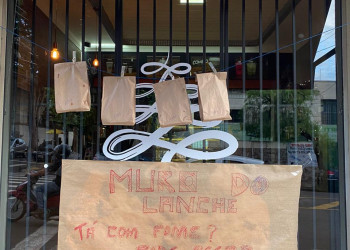 MURO DO
LANCHE
TÁ COM FOME?